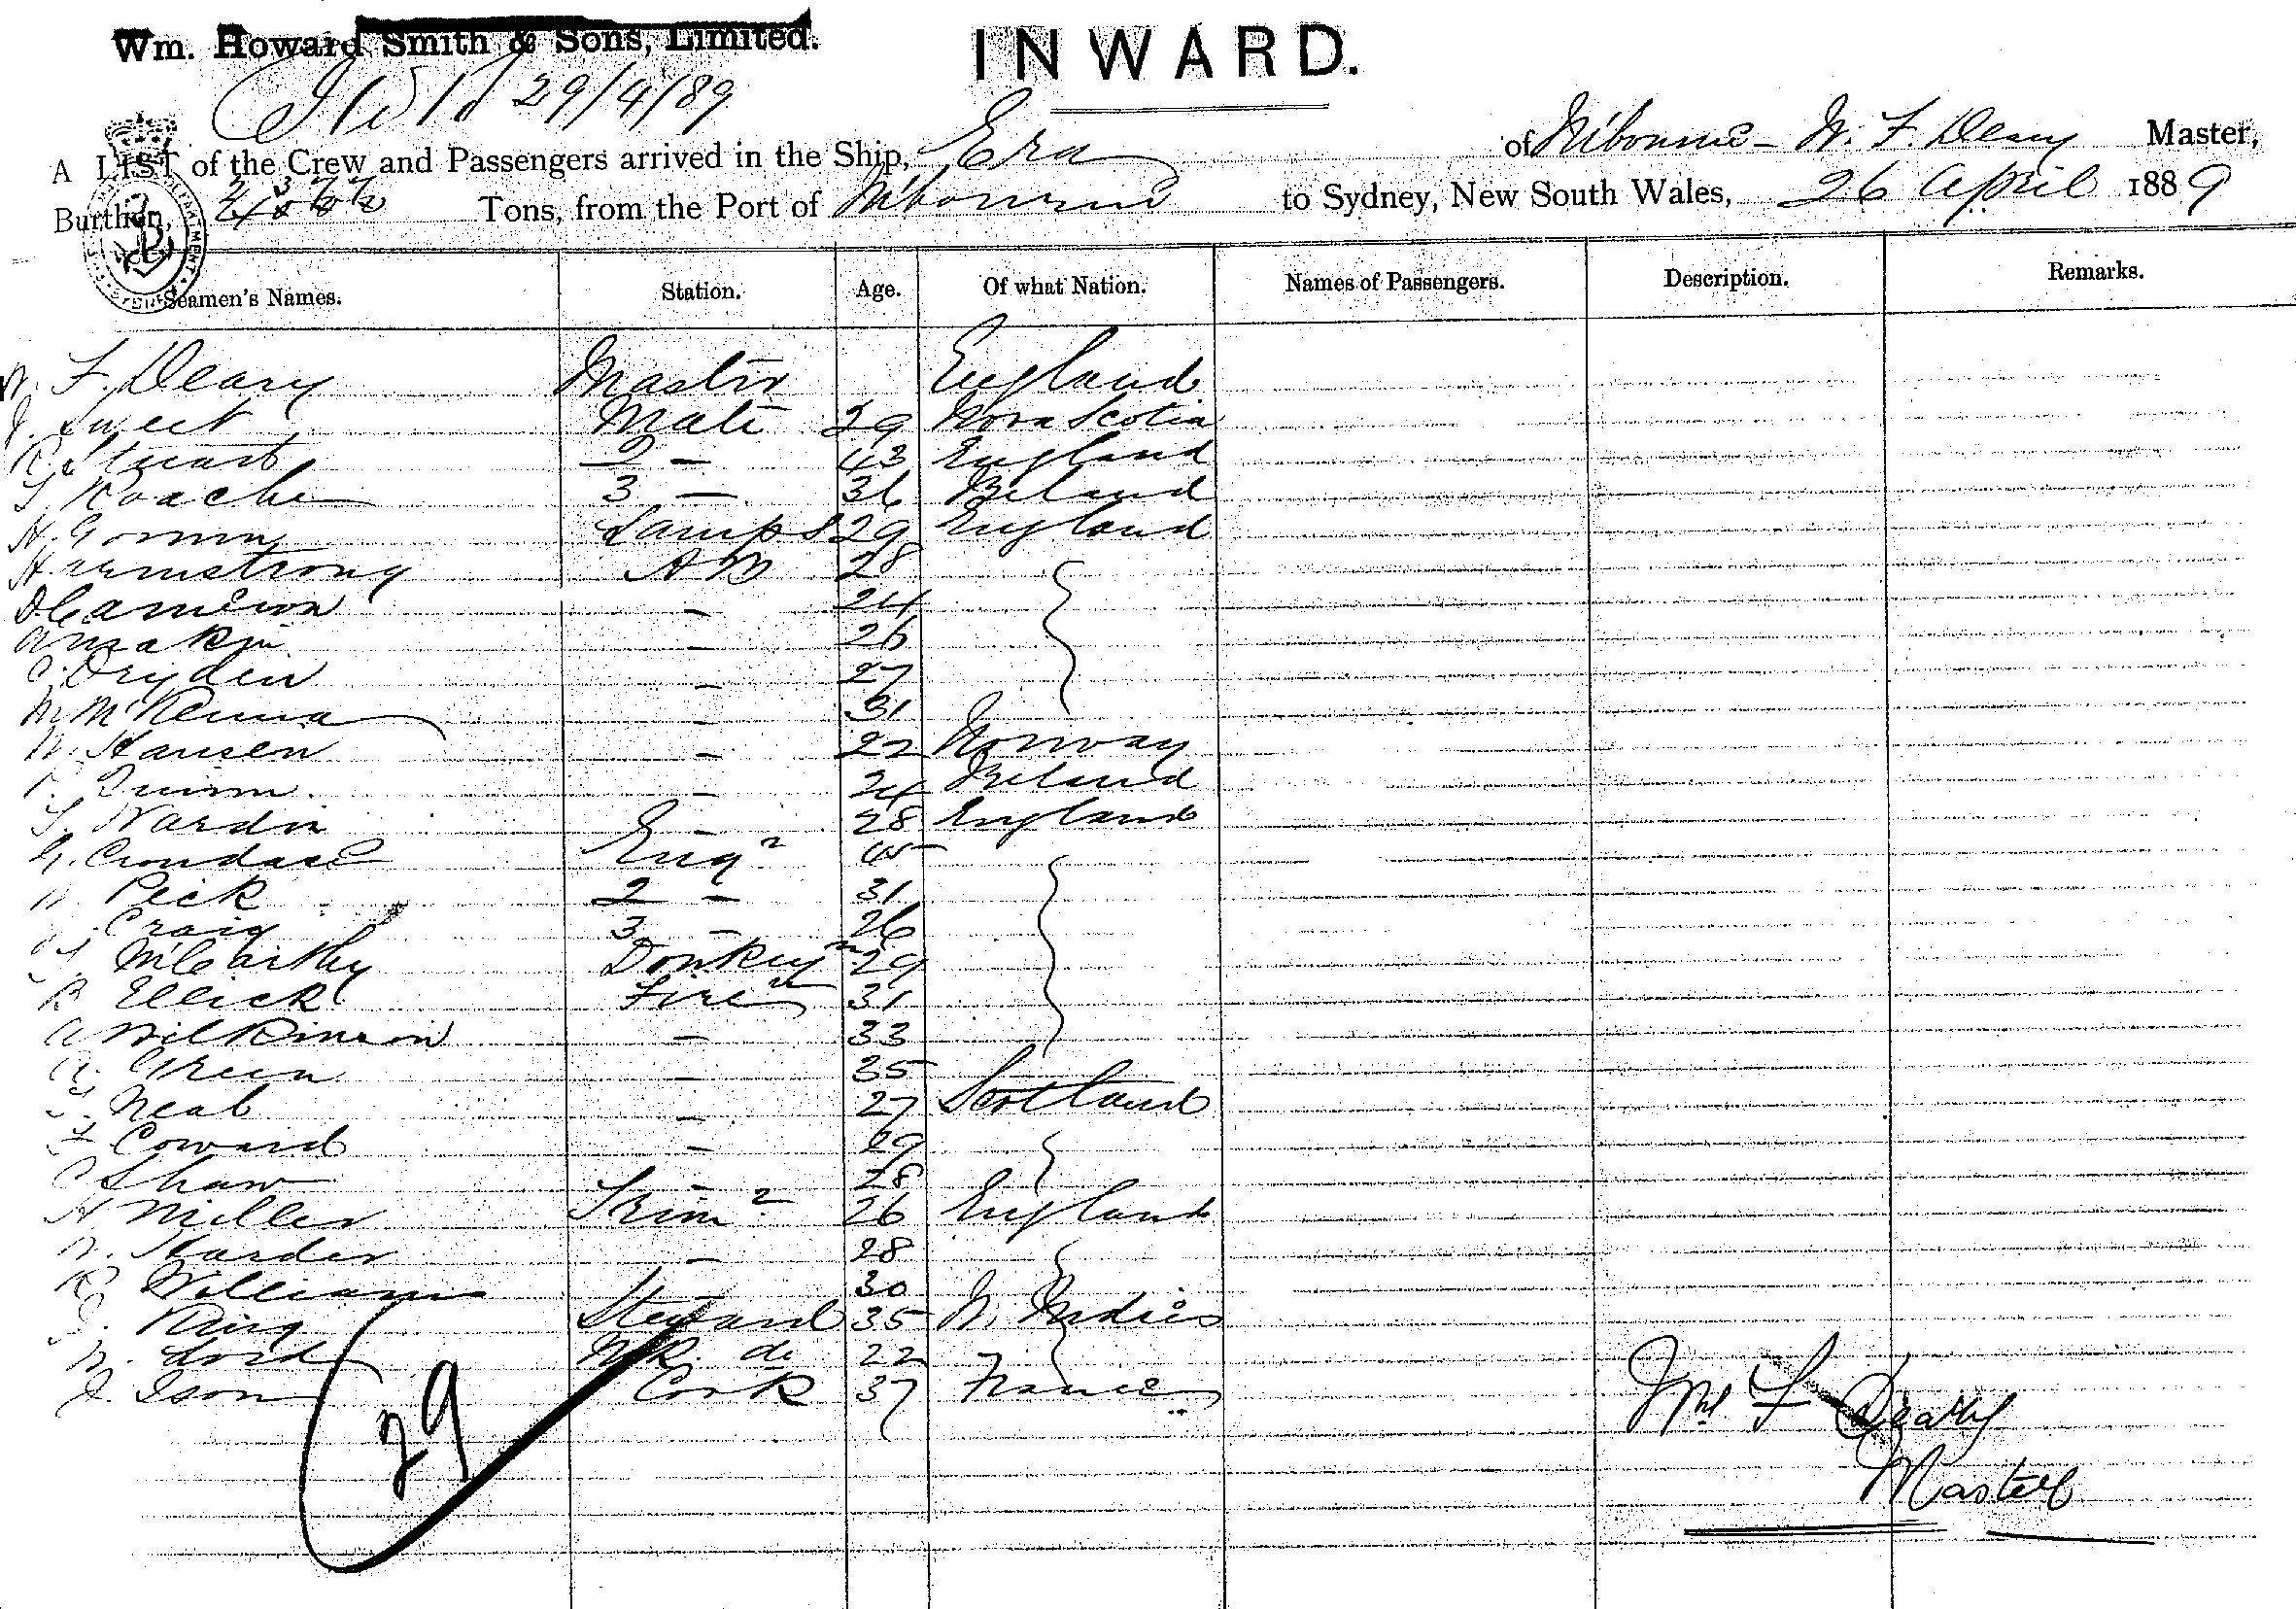 Wm. Howard Smith & Sons, Limited.
INWARD.
29/4/89
A LIST of the Crew and Passengers arrived in the Ship, Era of M'bourne - W. F. Deary Master,
Burthen, Tons, from the Port of M'bourne to Sydney, New South Wales, 26 April 1889
Seamen's Names. Station. Age. Of what Nation. Names of Passengers. Description. Remarks.
W. F. Deary Master England
J. Sweet Mate 39 Nova Scotia
R. Stuart 2 - 43 England
T Roache 3 - 36 Ireland
H. Gorman Lamps 29 England
H. Armstrong AB 28
D Cameron - 24
A Makin - 26
C. Dryden - 27
M McKenna - 31
W. Hansen - 22 Norway
P. Quinn. - 24 Ireland
T. Warden - 28 England
G. Crondace Engr 45
W Peck 2 - 31
Craig 3 - 26
T. McCarthy Donkeym 29
B Ellick Firem 31
A Wilkinson - 33
A. Green - 35
T. Neal - 27 Scotland
F Coward - 29
C Shaw - 28
H Miller Trimr 26 England
W. Harder - 28
R Williams 30
J. King Steward 35 W. Indies
W. Lord do 22
J. Ison Cook 37 France
29
Wm F Deary
Master